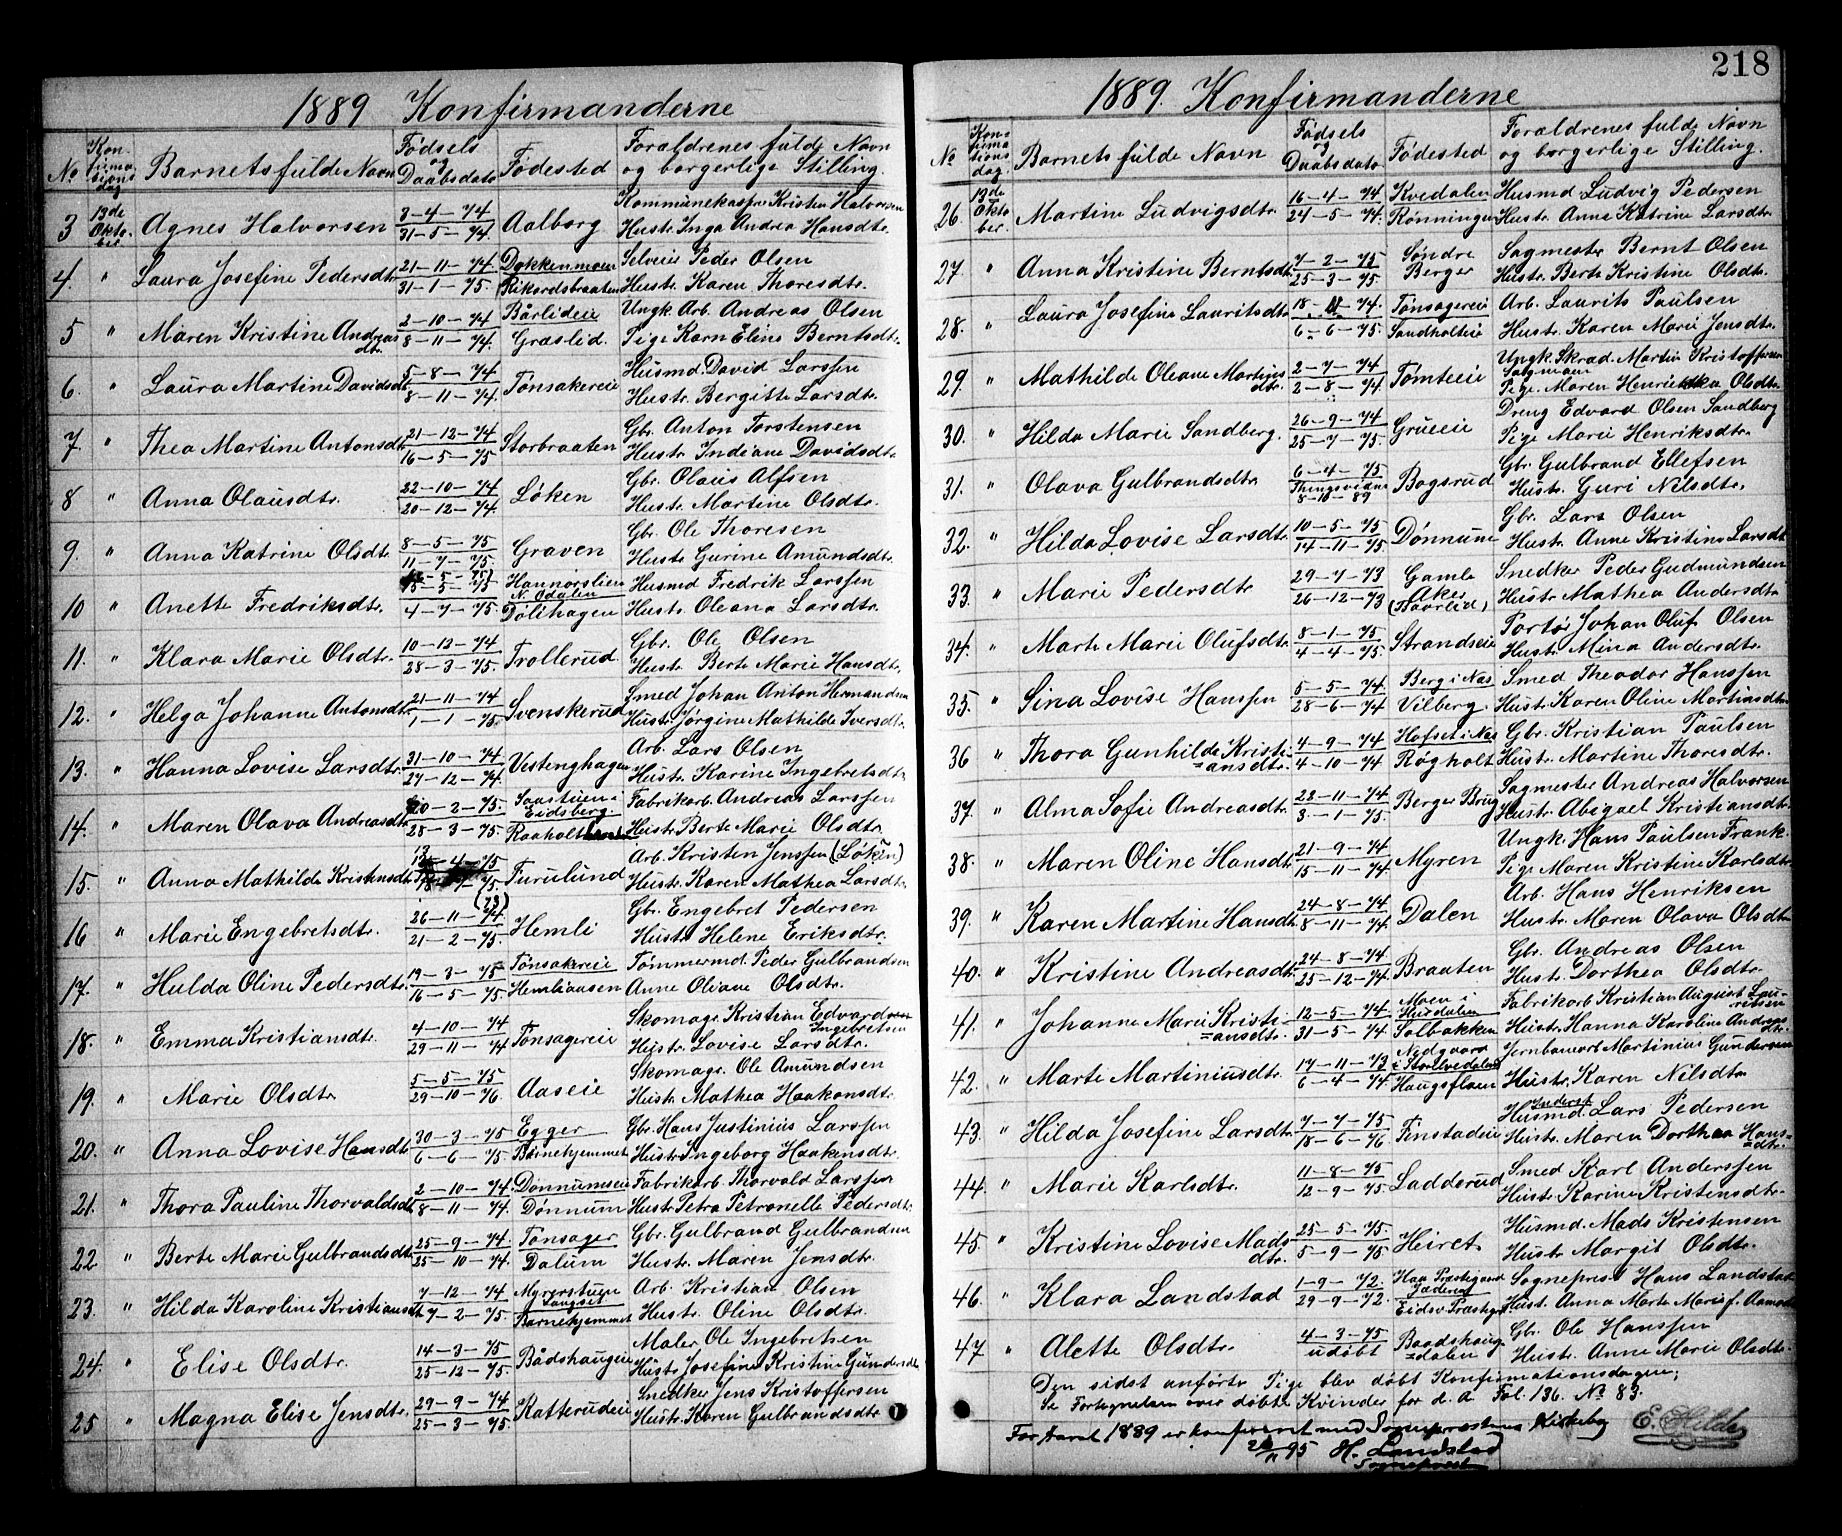 218
1889 Konfirmanderne
No
Kon-
firma-
tions
dag
Barnets fulde Navn
Fødsels
og
Daabsdato
Fødested
Forældrenes fulde Navn
og borgerlige Stilling.
3 13de Okto-ber Agnes Halvorsen 3-4-74 Aalborg Kommunekasser Kristen Halvorsen
31-5-74. Hustr. Inga Andrea Hansdtr.
4. " Laura Josefine Pedersdtr. 21-11-74 Dokkenmoen Selveier Peder Olsen
31-1-75. Rikardsbraaten Hustr. Karen Thoresdtr.
5 " Maren Kristine Andreas 2-10-74 Bårlideie Ungk. Arb. Andreas Olsen
dtr. 8-11-74. Græslid. Pige Karn Eline Berntsdtr.
6. " Laura Martine Davidsdtr 5-8-74 Tønsakereie Husmd. David Larssen
8-11-74. Hustr. Bergitte Larsdtr.
7. " Thea Martine Antonsdtr 21-12-74 Storbraaten Gbr. Anton Torstensen
16-5-75 Hustr. Indiane Davidsdtr.
8 " Anna Olausdtr. 22-10-74 Løken Gbr. Olaus Alfsen
20-12-74. Hustr. Martine Olsdtr.
9. " Anna Katrine Olsdtr 8-5-75 Graven Gbr. Ole Thoresen
11-7-75. Hustr. Gurine Amundsdtr.
10 " Anette Fredriksdtr. 15-5-75 Hannørslien N. Odalen Husmd Fredrik Larssen
4-7-75. Dølihagen Hustr. Oleana Larsdtr.
11. " Klara Marie Olsdtr. 10-12-74 Trollerud. Gbr. Ole Olsen
28-3-75. Hustr. Berte Marie Hansdtr.
12. " Helga Johanne Antonsdtr 21-11-74 Svenskerud Smed Johan Anton Hermandsen
1-1-75. Hustr. Jørgine Mathilde Iversdtr.
13. " Hanna Lovise Larsdtr 31-10-74 Vestenghagen Arb. Lars Olsen
27-12-74. Hustr. Karine Ingebretsdtr
14. " Maren Olava Andreasdtr 20-2-75. Saastuen i Eidsberg. Fabrikarb. Andreas Larssen
28-3-75. Raaholt Hustr. Berte Marie Olsdtr
15. " Anna Mathilde Kristensdtr 4-75 Furulund Arb. Kristen Jenssen (Løken)
75. Hustr. Karen Mathea Larsdtr.
16 " Marie Engebretsdtr. 26-11-74. (73) Hemli Gbr. Engebret Pedersen
21-2-75. Hustr Helene Eriksdtr.
17. " Hulda Oline Pedersdtr. 19-3-75 Tønsakereie Tømmermd. Peder Gulbrandsen
16-5-75 Hemliaasen Anne Oliane Olsdtr.
18. " Emma Kristiansdtr. 4-10-74 Tonsagereie Skomag. Kristian Edvardsen
Ingebretsen
29-11-74 Hustr. Lovise Larsdtr.
19. " Marie Olsdtr 5-5-75 Aaseie Skomagr. Ole Amundsen
29-10-76. Hustr. Mathea Haakonsdtr.
20. " Anna Lovise Hansdtr 30-3-75 Egger Gbr. Hans Justinius Larssen
6-6-75. Barnehjemmet Hustr. Ingeborg Haakensdtr.
21. " Thora Pauline Thorvaldsdtr 2-10-74. Dønnumseie Fabrikarb. Thorvald Larssen
8-11-74. Dønnum Hustr Petra Petronelle Pedersdtr
22 " Berte Marie Gulbrandsdtr 25-9-74 Tønsager Gbr. Gulbrand Gulbrandsen
25-10-74. Dalum Hustr. Maren Jensdtr.
23. " Hilda Karoline Kristiansdtr 7-12-74 Myrerstuen Langset Arb. Kristian Olsen
7-2-75. Barnehjemmet Hustr. Oline Olsdtr.
24. " Elise Olsdtr. 14-3-75 Bådshaugeie Maler Ole Ingebretsen
25-12-75. Hustr. Josefine Kristine Gundersdtr
25 " Magna Elise Jensdtr. 29-9-74 Katterudeie Snedker Jens Kristoffersen
25-3-75. Hustr. Karen Gulbrandsdtr
1889. Konfirmanderne
No
Kon-
firma-
tions
dag.
Barnets fulde Navn
Fødsels
og
Daabsdato
Fødested
Forældrenes fulde Navn
og borgerlige Stilling.
26. 13de Okto ber. Martine Ludvigsdtr. 16-4-74 Kvedalen Husmd Ludvig Pedersen
24-5-74. Rønningen Hustr. Anne Katrine Larsdtr.
27. " Anna Kristine Berntsdtr 7-2-75 Søndre Berger Sagmester Bernt Olsen
25-3-75. Hustr. Berte Kristine Olsdtr.
28. " Laura Josefine Lauritsdtr 18. 11-74. Tønsagereie Arb. Laurits Paulsen
6-6-75. Sandholteie Hustr. Karen Marie Jensdtr.
29. " Mathilde Oleane Martins 2-7-74 Tømteeie Ungk. Skrad. Martin Kristoffersen
Salgmaan
dtr. 2-8-74. Pige. Maren Henrikka Olsdtr
30. " Hilda Marie Sandberg. 26-9-74 Grueeie Dreng Edvard Olsen Sandberg
25-7-75. Pige Marie Henriksdtr.
31. " Olava Gulbrandsdtr 6-4-75 Bogsrud Gbr. Gulbrand Ellefsen
Thingsvidne 8-10-89 Hustr. Guri Nilsdtr.
32. " Hilda Lovise Larsdtr. 10-5-75 Dønnum Gbr. Lars Olsen
14-11-75 Hustr. Anne Kristine Larsdtr
33. " Marie Pedersdtr 29-7-73 Gamle Aker Snedker Peder Gudmundsen
26-12-73 (Haarlid) Hustr. Mathea Andersdtr.
34. " Marte Marie Olufsdtr. 8-1-75 Strandseie Portør Johan Oluf Olsen
4-4-75. Hustr. Mina Andersdtr.
35. " Sina Lovise Hanssen 5-5-74 Berg i Nes Smed Theodor Hanssen
28-6-74 Vilberg. Hustr. Karen Oline Martinsdtr.
36 " Thora Gunhilde Kristi- 4-9-74 Hofset i Nes Gbr. Kristian Paulsen
=ansdtr. 4-10-74 Røgholt Hustr. Martine Thoresdtr.
37. " Alma Sofie Andreasdtr. 28-11-74 Berger Brug Sagmester Andreas Halvorsen
3-1-75. Hustr. Abigael Kristiansdtr.
38. " Maren Oline Hansdtr. 21-9-74 Myren Ungk. Hans Paulsen Frank.
15-11-74 Pige Maren Kristine Karlsdtr.
39. " Karen Martine Hansdtr. 24-8-74 Dalen Arb. Hans Henriksen
8-11-74. Hustr. Maren Olava Olsdtr
40. " Kristine Andreasdtr. 24-8-74 Braaten Gbr. Andreas Olsen
25-12-74. Hust. Dorthea Olsdtr.
41. " Johanne Marie Kristi- 12-5-74 Moen i Hurdalen Fabrikarb Kristian August Lau-
ritsen
=ansdtr. 31-5-74 Solbakken Hustr. Hanna Karoline Andreas
dtr.
42. " Marte Martiniusdtr. 17-11-73 Nedgaard i Storelvedalen Jernbanarb Martinius Gundersen
6-4-74 Haugsflaen Hustr. Karen Nilsdtr.
43. " Hilda Josefine Larsdtr. 7-7-75 Finstadeie Inderst Husmd. Lars Pedersen
18-6-76 Hustr. Maren Dorthea Hans=
=dtr.
44. " Marie Karlsdtr. 11-8-75 Ladderud Smed Karl Anderssen
12-9-75 Hustr. Karine Kristensdtr.
45. " Kristine Lovise Mads 25-5-75. Heiret. Husmd. Mads Kristensen
dtr. 5-9-75 Hustr. Margit Olsdtr.
46. " Klara Landstad 1-9-72. Haa Præstegaard Jæderen Sogneprest Hans Landstad
29-9-72. Eidsv. Præstegrd Hust. Anna Marte Marie f. Aamodt
47 " Alette Olsdtr. 4-3-75 Baadshaug Gbr. Ole Hanssen
udøbt =dalen Hustr. Anne Marie Olsdtr.
Den sidst anførte Pige blev døbt Konfirmationsdagen;
Se Fortegnelsen over døbte Kvinder for d.A. Fol. 136. No 83.
For Aaret 1889 er konfereret med Sognepræstens Kirkebog E. Hilde
95 H. Landstad
Sogneprest